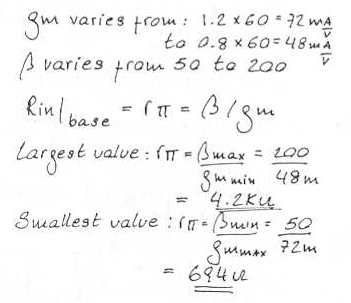 gm varies from: 1.2 x 60 = 72 mA/V
to 0.8 x 60 = 48 mA/V
β varies from 50 to 200
Rin|base = rπ = β/gm
Largest value: rπ = βmax/gm min = 200/48m
= 4.2KΩ
Smallest value: rπ = βmin/gmmax = 50/72m
= 694Ω